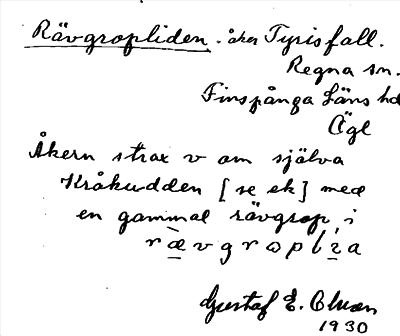 Rävgropliden. åker Tyrisfall.
Regna sn.
Finspånga Läns hd
Ögl
Åkern strax v om själva
Kråkudden [se ek] med
en gammal rävgrop i
rævgroplia
Gustaf E. Olsson
1930